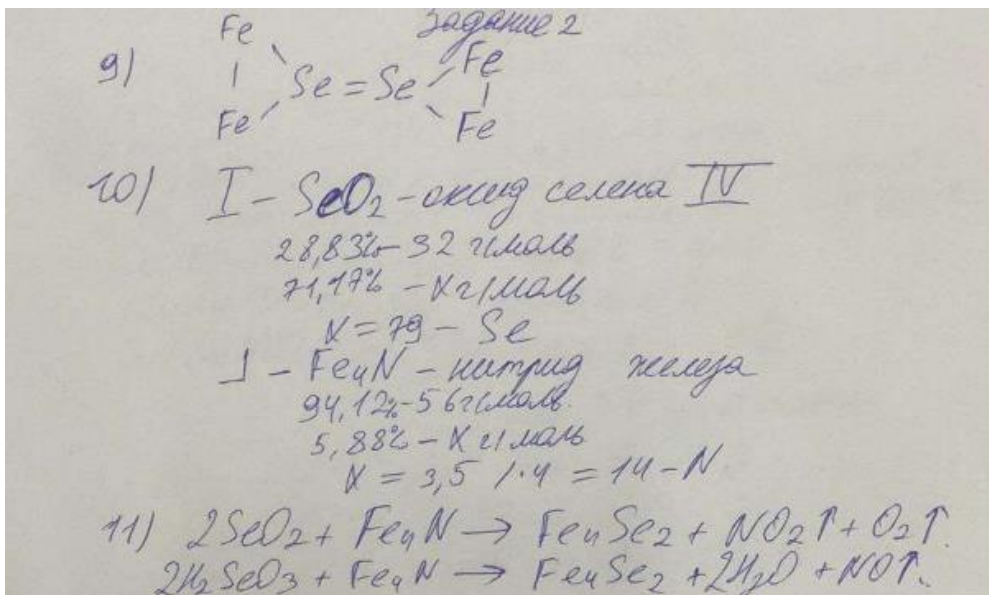 Задание 2
9) Fe Fe Se = Se Fe Fe
10) I - SeO2 - оксид селена IV
28,83% - 32 г/моль
71,17% - X г/моль
X = 79 - Se
J - Fe4N - нитрид железа
94,12% - 56 г/моль.
5,88% - X г/моль
X = 3,5 /·4 = 14 - N
11) 2SeO2 + Fe4N → Fe4Se2 + NO2↑ + O2↑.
2H2SeO3 + Fe4N → Fe4Se2 + 2H2O + NO↑.